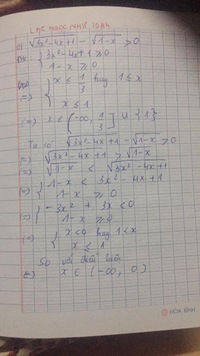 a) √3x²-4x+1 - √1-x > 0
ĐK: { 3x²-4x+1 ≥ 0
1-x ≥ 0
⇔ { x ≤ 1/3 hay 1 ≤ x
x ≤ 1
⇔ x ∈ (-∞, 1/3] ∪ {1}
Ta có √3x²-4x+1 - √1-x > 0
⇔ √3x²-4x+1 > √1-x
⇔ √1-x < √3x²-4x+1
⇔ { 1-x < 3x²-4x+1
1-x ≥ 0
⇔ { -3x² + 3x < 0
1-x ≥ 0
⇔ { x<0 hay 1<x
x ≤ 1
So với điều kiện
⇔ x ∈ (-∞, 0)